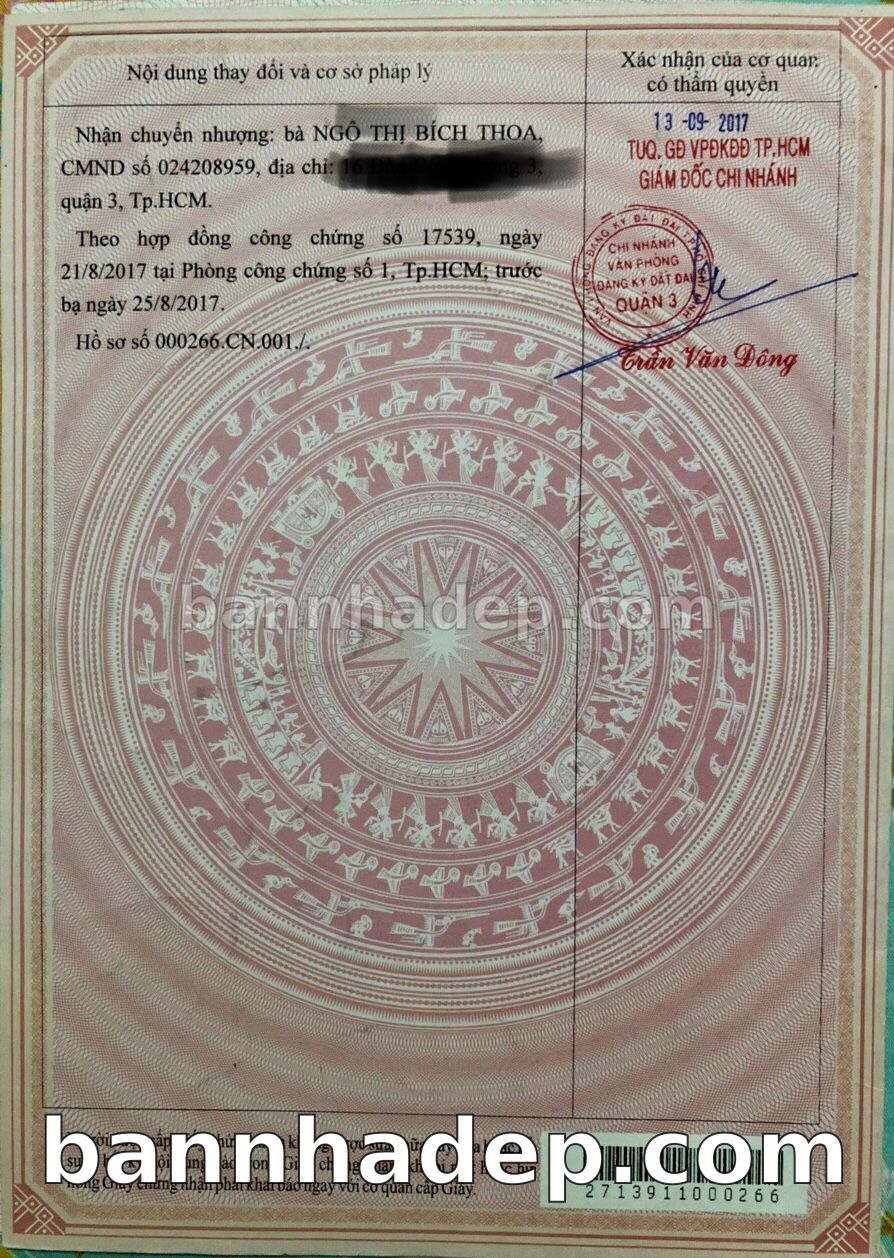 Nội dung thay đổi và cơ sở pháp lý
Xác nhận của cơ quan
có thẩm quyền
Nhận chuyển nhượng: bà NGÔ THỊ BÍCH THOA,
CMND số 024208959, địa chỉ: 3,
quận 3, Tp.HCM.
Theo hợp đồng công chứng số 17539, ngày
21/8/2017 tại Phòng công chứng số 1, Tp.HCM; trước
bạ ngày 25/8/2017.
Hồ sơ số 000266.CN.001./.
13-09-2017
TUQ. GĐ VPĐKĐĐ TP.HCM
GIÁM ĐỐC CHI NHÁNH
CHI NHÁNH
VĂN PHÒNG
ĐĂNG KÝ ĐẤT ĐAI
QUẬN 3
Trần Văn Đông
bannhadep.com
bannhadep.com
Giấy chứng nhận phải khai báo ngay với cơ quan cấp Giấy.
2713911000266